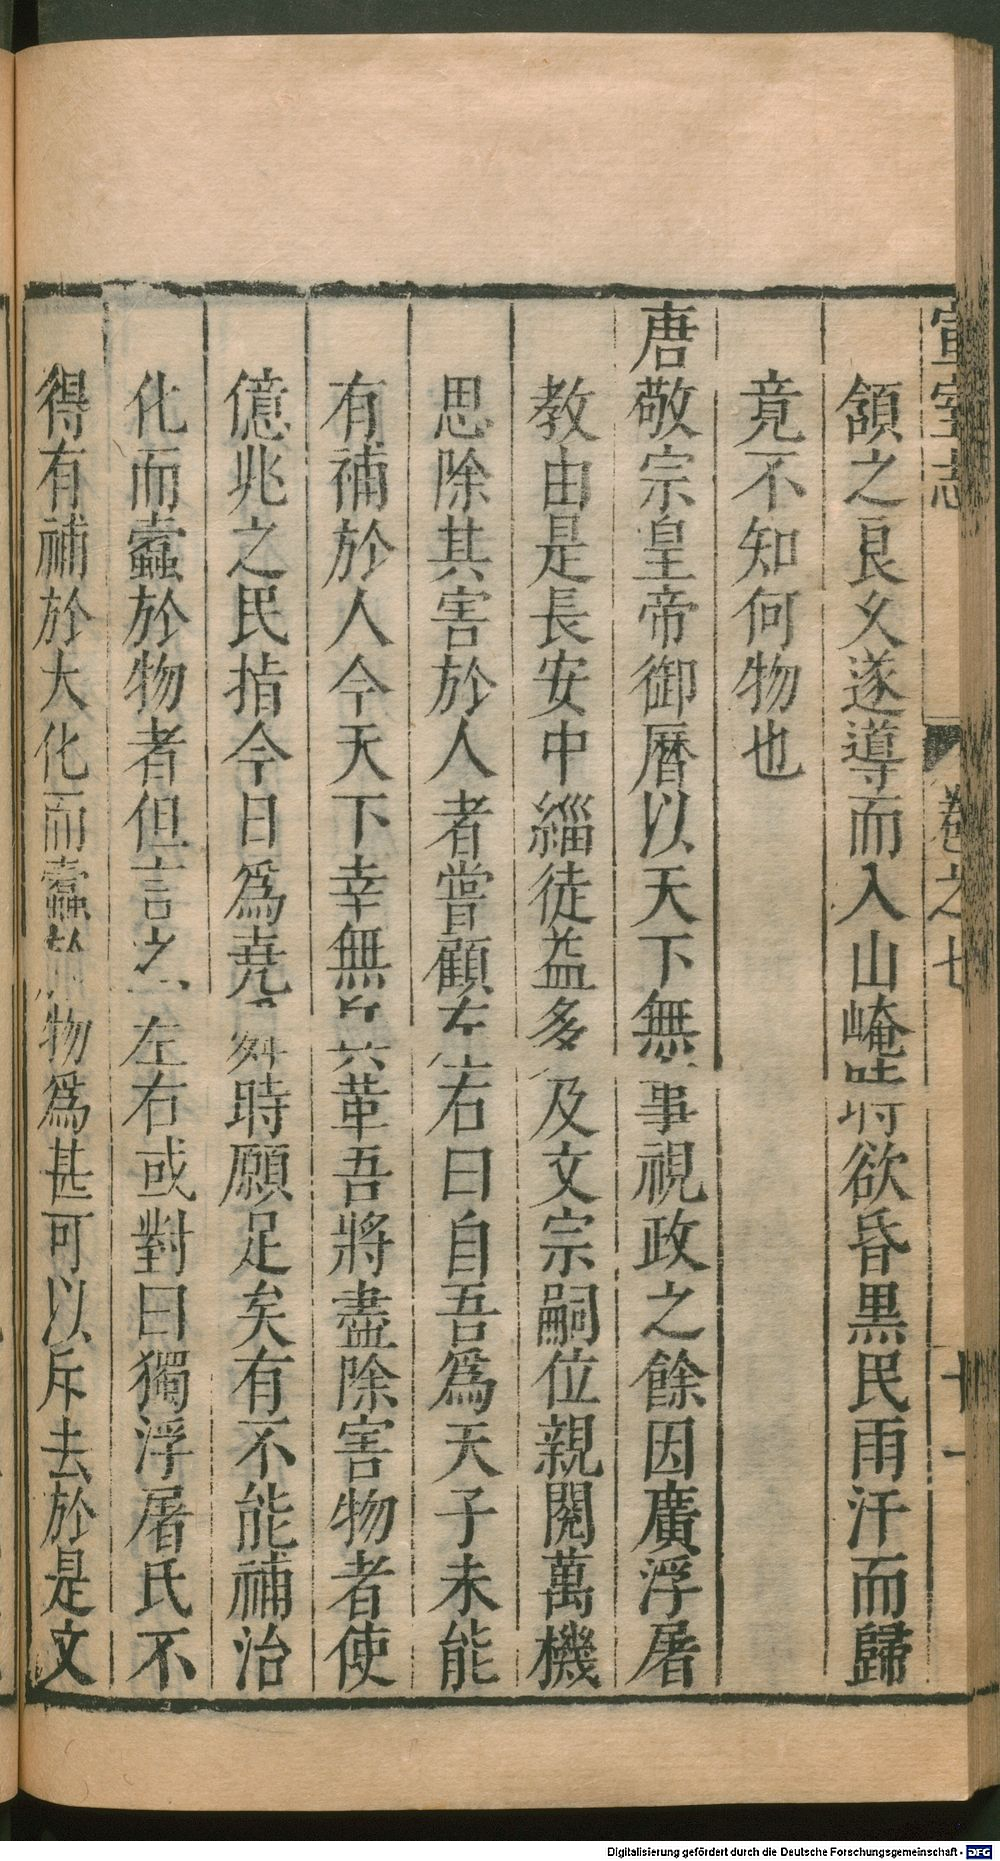 宣室志 卷之七 十一
頷之良久遂導而入山崦時欲昏黑民雨汗而歸
竟不知何物也
唐敬宗皇帝御曆以天下無事視政之餘因廣浮屠
教由是長安中緇徒益多及文宗嗣位親閱萬機
思除其害於人者嘗顧左右曰自吾爲天子未能
有補於人今天下幸無兵革吾將盡除害物者使
億兆之民指今日爲堯舜時願足矣有不能補治
化而蠹於物者但言之左右或對曰獨浮屠氏不
得有補於大化而蠹於物爲甚可以斥去於是文
Digitalisierung gefördert durch die Deutsche Forschungsgemeinschaft - DFG